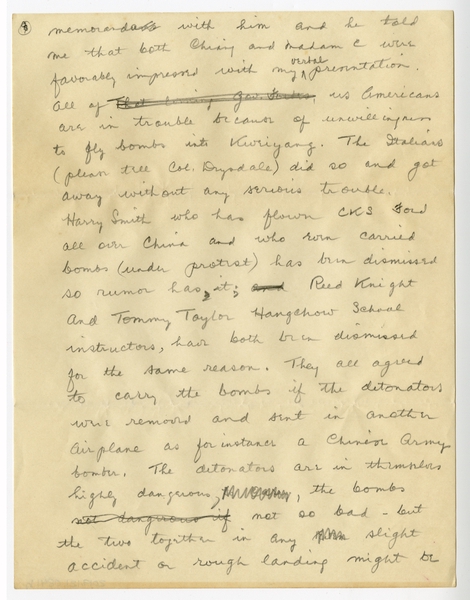 memoranda with him and he told
me that both Chiang and Madam C were
favorably impressed with my verbal presentation.
All of us Americans
are in trouble because of unwillingness
to fly bombs into Kweiyang. The Italians
(please tell Col. Drysdale) did so and got
away without any serious trouble.
Harry Smith who has flown CKS Ford
all over China and who even carried
bombs (under protest) has been dismissed
so rumor has it; and Reed Knight
and Tommy Taylor Hangchow School
instructors, have both been dismissed
for the same reason. They all agreed
to carry the bombs if the detonators
were removed and sent in another
airplane as for instance a Chinese Army
bomber. The detonators are in themselves
highly dangerous, the bombs
not dangerous if not so bad - but
the two together in any slight
accident or rough landing might be